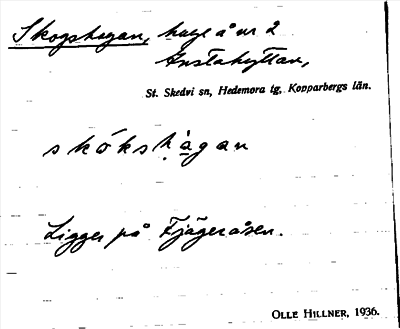 Skogshagan, hage å nr 2
Gustahyttan,
St. Skedvi sn, Hedemora tg, Kopparbergs län.
skókshạgan
Ligger på Fjägeråsen.
OLLE HILLNER, 1936.